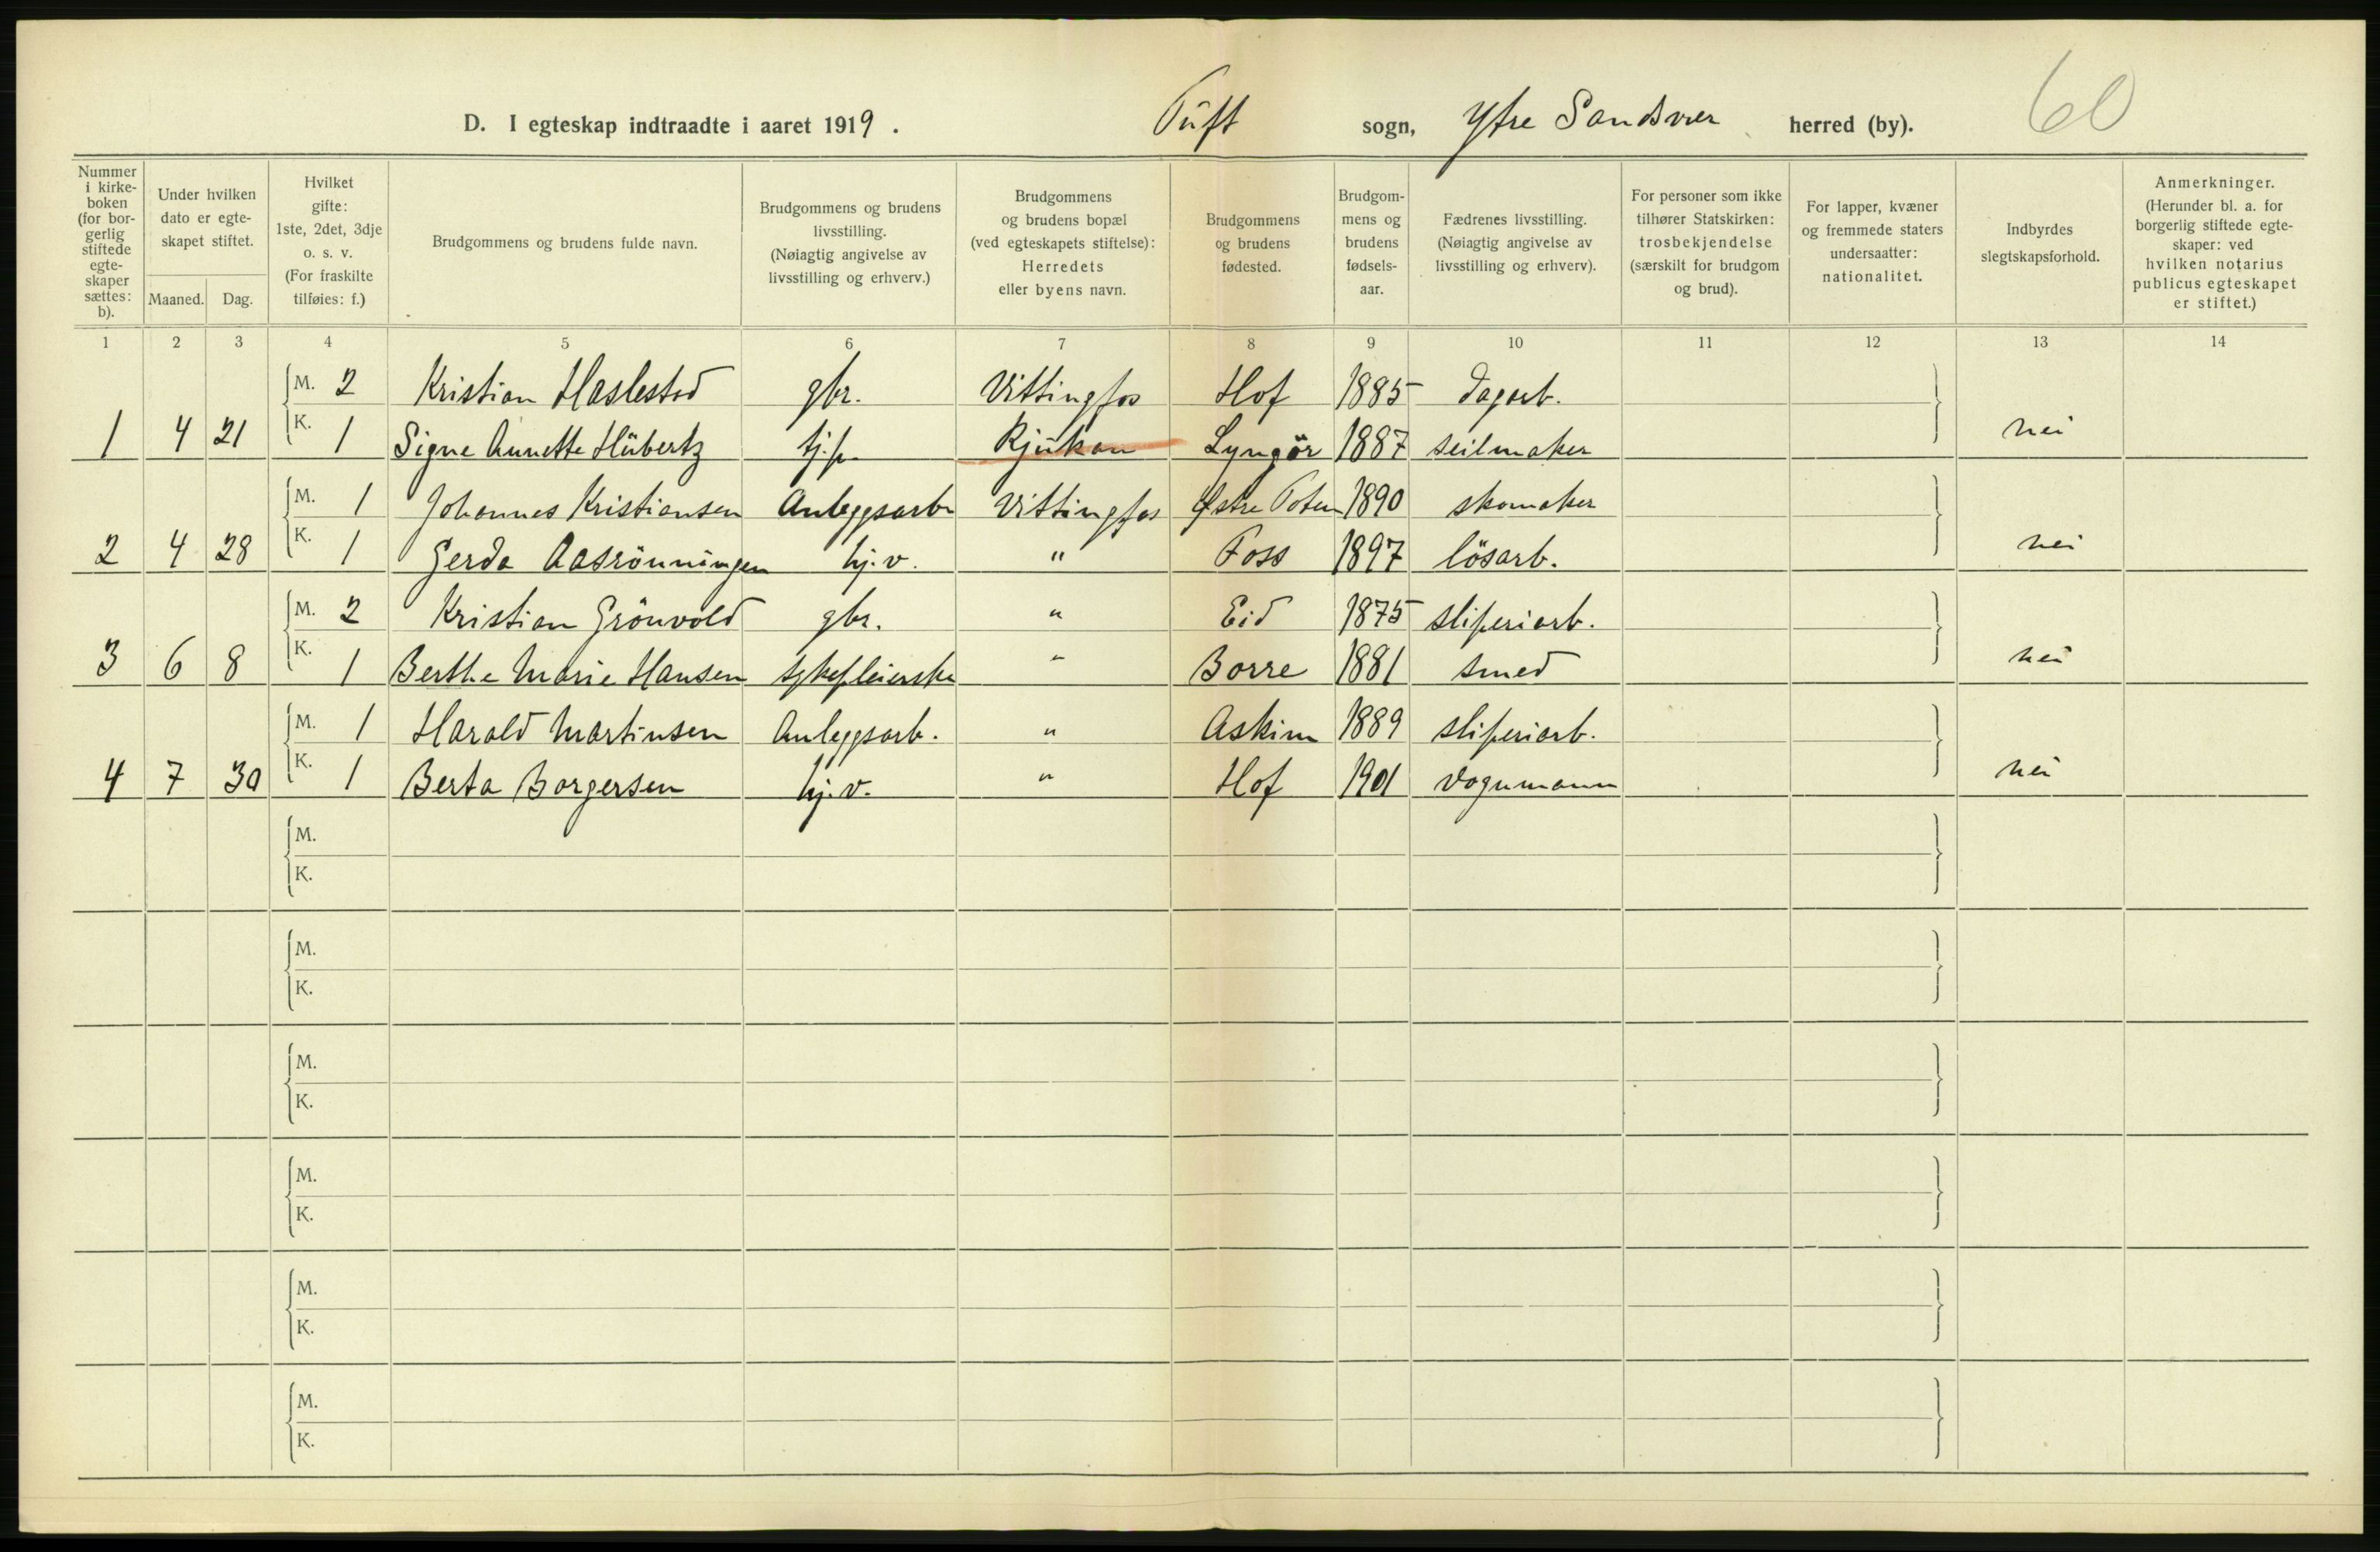 D. I egteskap indtraadte i aaret 1919. Tuft sogn, Ytre Sandsvær herred (by). 60
Nummer i kirkeboken (for borgerlig stiftede egteskaper sættes: b).
Under hvilken dato er egteskapet stiftet. Maaned. Dag.
Hvilket gifte: 1ste, 2det, 3dje o. s. v. (For fraskilte tilføies: f.)
Brudgommens og brudens fulde navn.
Brudgommens og brudens livsstilling. (Nøiagtig angivelse av livsstilling og erhverv.)
Brudgommens og brudens bopæl (ved egteskapets stiftelse): Herredets eller byens navn.
Brudgommens og brudens fødested.
Brudgommens og brudens fødselsaar.
Fædrenes livsstilling. (Nøiagtig angivelse av livsstilling og erhverv).
For personer som ikke tilhører Statskirken: trosbekjendelse (særskilt for brudgom og brud).
For lapper, kvæner og fremmede staters undersaatter: nationalitet.
Indbyrdes slegtskapsforhold.
Anmerkninger. (Herunder bl. a. for borgerlig stiftede egteskaper: ved hvilken notarius publicus egteskapet er stiftet.)
1 2 3 4 5 6 7 8 9 10 11 12 13 14
M. 2 Kristian Haslestad gbr. Vittingfos Hof 1885 dagarb.
1 4 21 K. 1 Signe Annette Hübertz tj.p. Rjukan Lyngör 1887 seilmaker nei
M. 1 Johannes Kristiansen Anleggsarb. Vittingfos Østre Toten 1890 skomaker
2 4 28 K. 1 Gerda Aasrönningen hj.v. " Foss 1897 lösarb. nei
M. 2 Kristian Grönvold gbr. " Eid 1875 sliperiarb.
3 6 8 K. 1 Berthe Marie Hansen sykepleierske " Borre 1881 smed nei
M. 1 Harald Martinsen Anleggsarb. " Askim 1889 sliperiarb.
4 7 30 K. 1 Berta Borgersen hj.v. " Hof 1901 vognmann nei
M.
K.
M.
K.
M.
K.
M.
K.
M.
K.
M.
K.